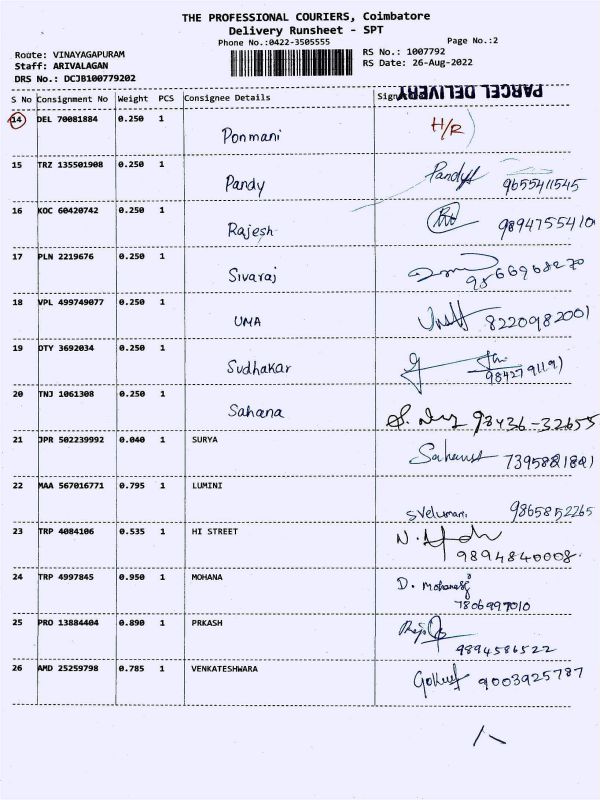 THE PROFESSIONAL COURIERS, Coimbatore
Delivery Runsheet - SPT
Phone No.:0422-3505555 Page No.:2
Route: VINAYAGAPURAM RS No.: 1007792
Staff: ARIVALAGAN RS Date: 26-Aug-2022
DRS No.: DCJB100779202
PARCEL DELIVERY
S No Consignment No Weight PCS Consignee Details
14 DEL 70081884 0.250 1 Ponmani H/R
15 TRZ 135501908 0.250 1 Pandy Pandy 9655411545
16 KOC 60420742 0.250 1 Rajesh 9894755410
17 PLN 2219676 0.250 1 Sivaraj 9566968270
18 VPL 499749077 0.250 1 UMA 8220982001
19 DTY 3692034 0.250 1 Sudhakar
20 TNJ 1061308 0.250 1 Sahana 98436-32655
21 JPR 502239992 0.040 1 SURYA
22 MAA 567016771 0.795 1 LUMINI S Velumani 9865852265
23 TRP 4084106 0.535 1 HI STREET 9894840008.
24 TRP 4997845 0.950 1 MOHANA 7806997010
25 PRO 13884404 0.890 1 PRKASH 9894586522
26 AMD 25259798 0.785 1 VENKATESHWARA 9003925787